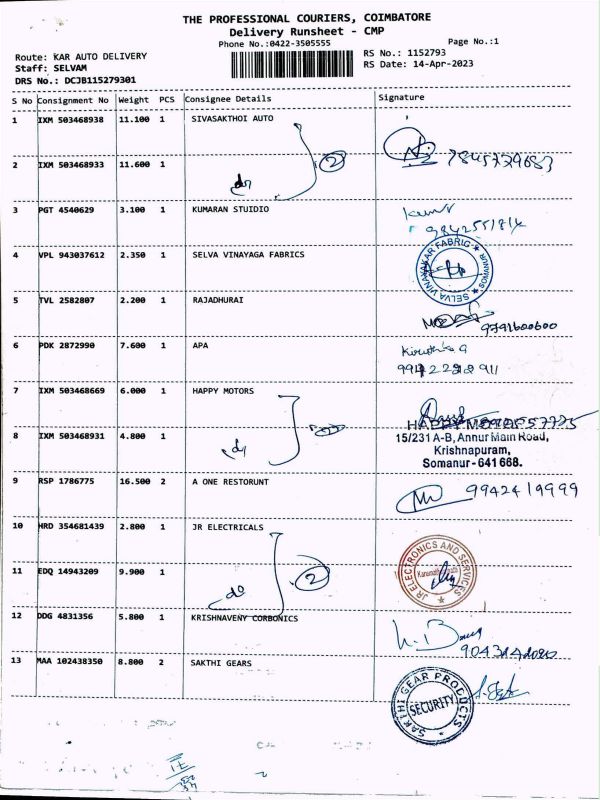 THE PROFESSIONAL COURIERS, COIMBATORE
Delivery Runsheet - CMP
Phone No.:0422-3505555
Page No.:1
Route: KAR AUTO DELIVERY
Staff: SELVAM
DRS No.: DCJB115279301
RS No.: 1152793
RS Date: 14-Apr-2023
S No Consignment No Weight PCS Consignee Details Signature
1 IXM 503468938 11.100 1 SIVASAKTHOI AUTO
2 IXM 503468933 11.600 1
2 7845739683
3 PGT 4540629 3.100 1 KUMARAN STUIDIO
4 VPL 943037612 2.350 1 SELVA VINAYAGA FABRICS
SELVA VINAYAKAR FABRIC SOMANUR
5 TVL 2582807 2.200 1 RAJADHURAI
9791600600
6 PDK 2872990 7.600 1 APA
7 IXM 503468669 6.000 1 HAPPY MOTORS
8 IXM 503468931 4.800 1
HAPPY MOTORS
15/231 A-B, Annur Main Road,
Krishnapuram,
Somanur - 641 668.
9 RSP 1786775 16.500 2 A ONE RESTORUNT
9942419999
10 HRD 354681439 2.800 1 JR ELECTRICALS
11 EDQ 14943209 9.900 1
2
JR ELECTRONICS AND SERVICES
12 DDG 4831356 5.800 1 KRISHNAVENY CORBONICS
13 MAA 102438350 8.800 2 SAKTHI GEARS
SAKTHI GEAR PRODUCTS
SECURITY